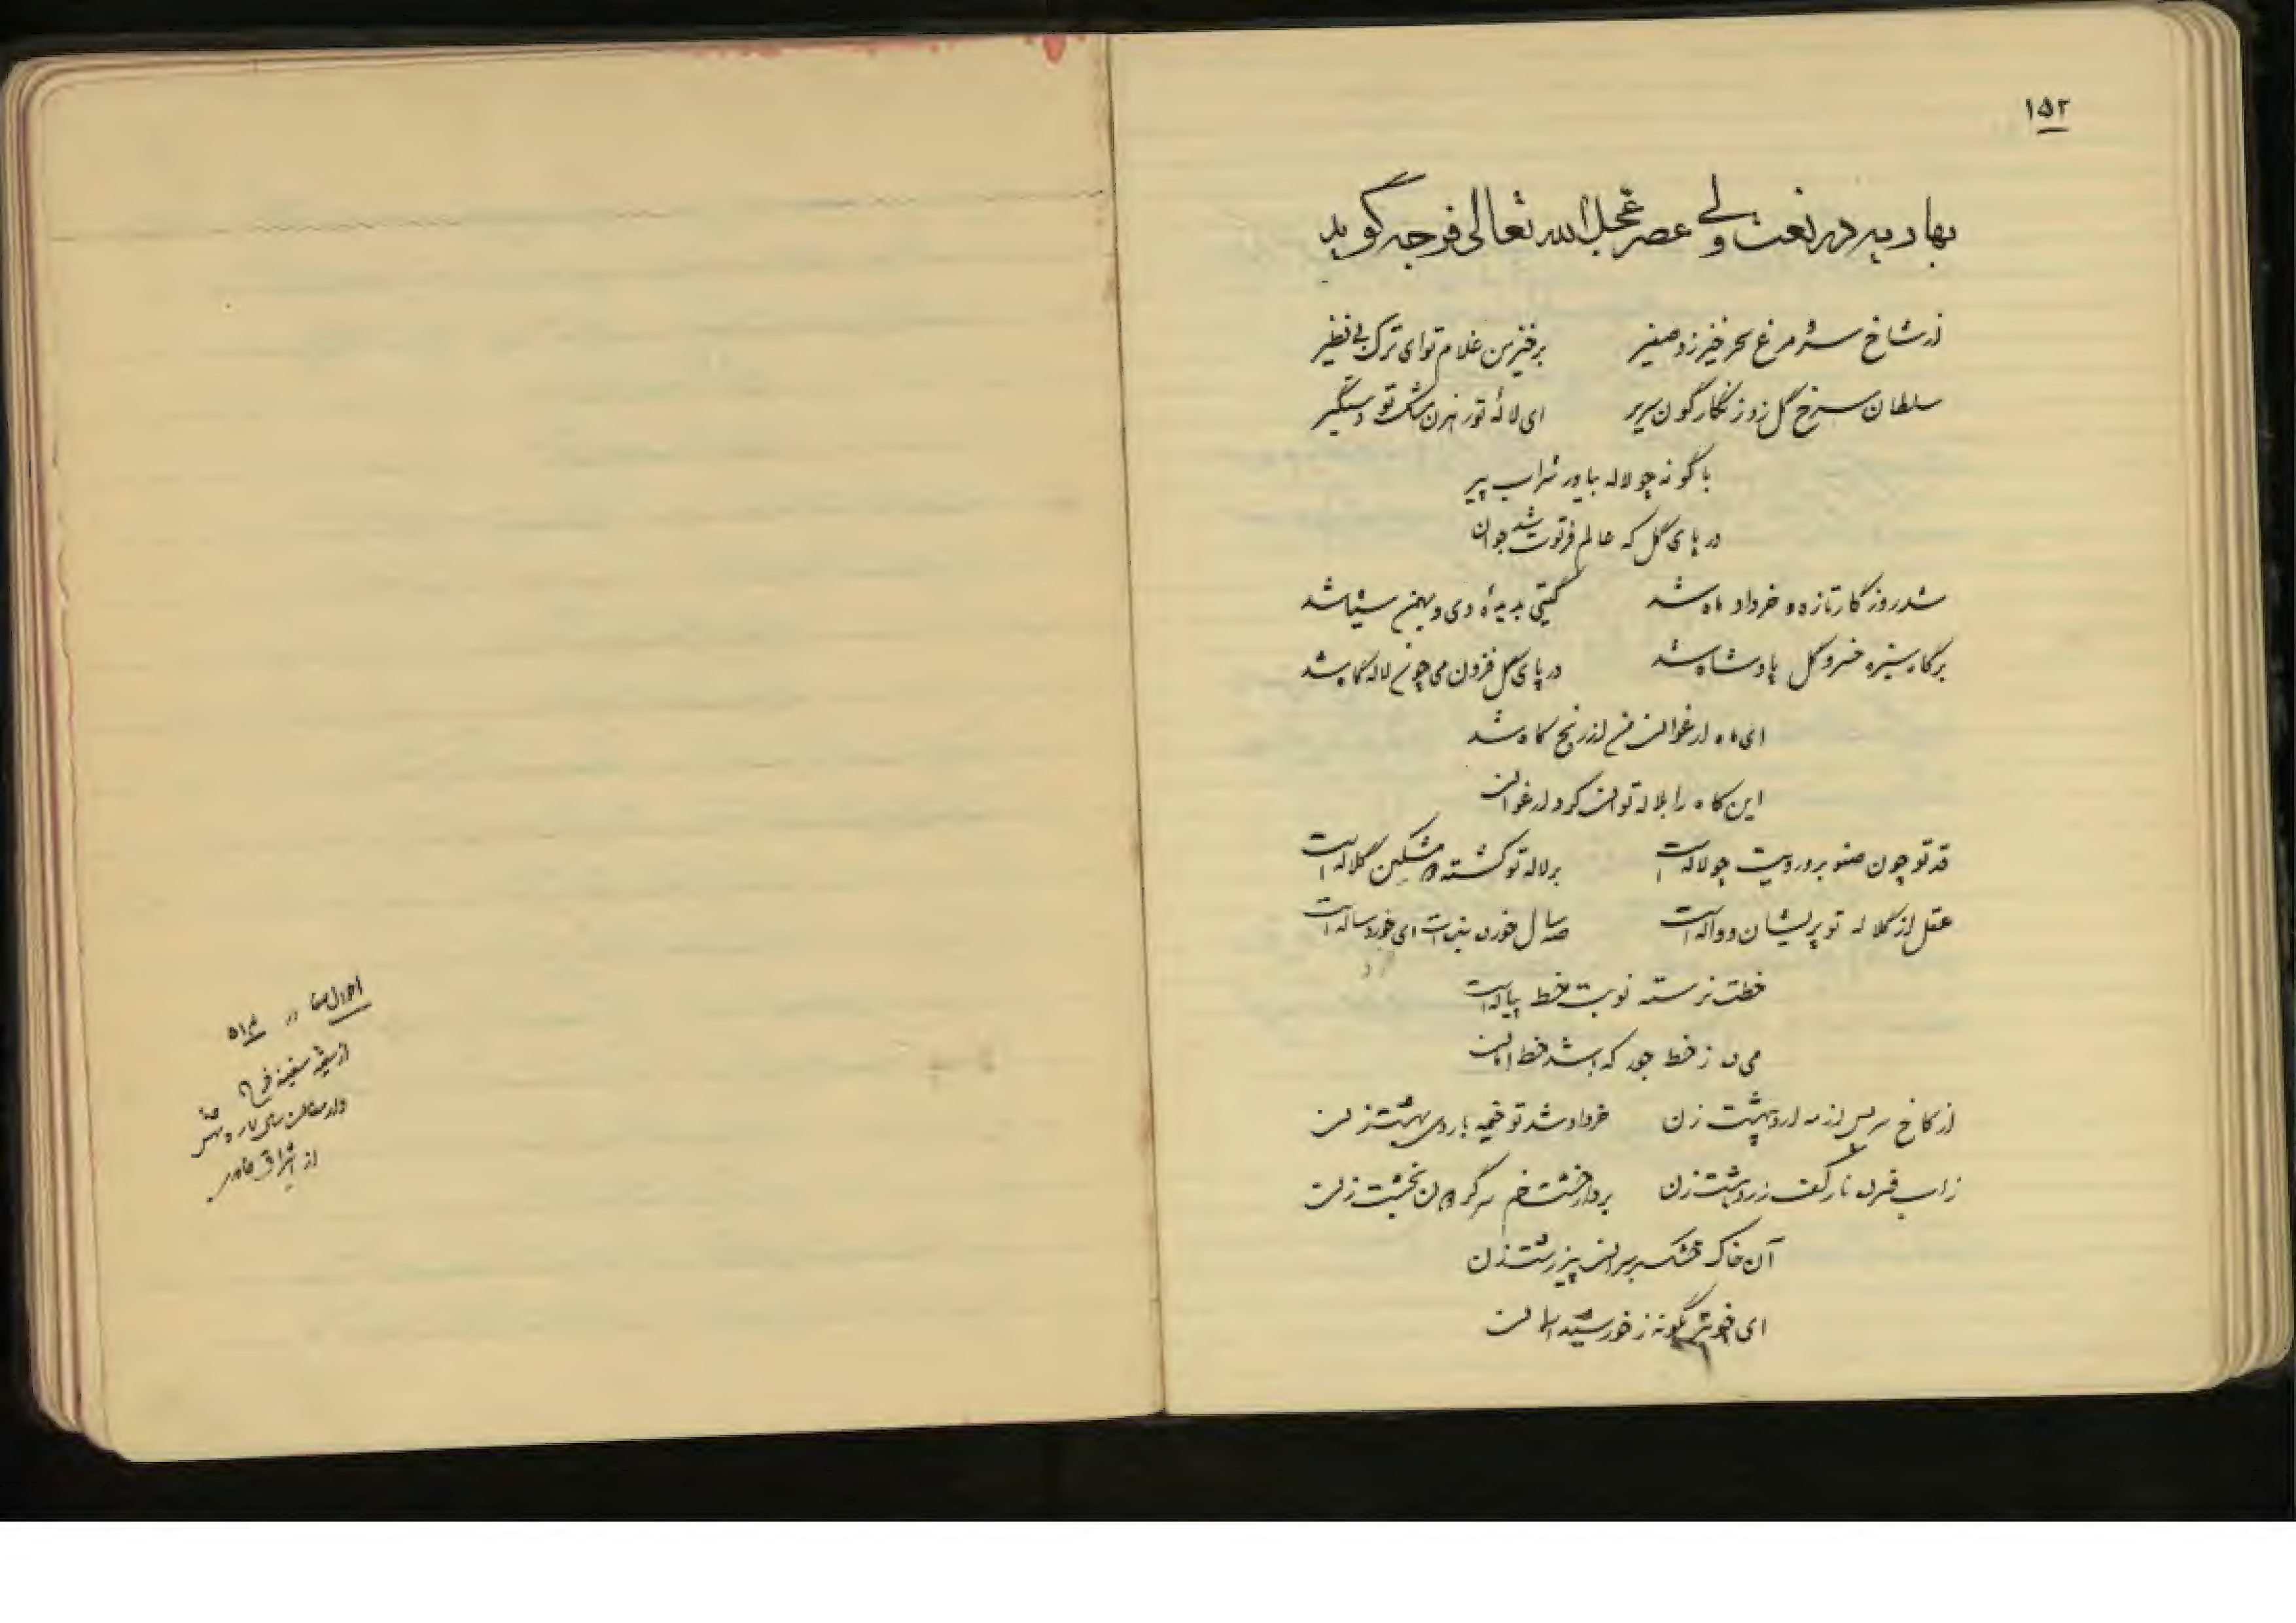 ۱۵۲
بهاریه در نعت ولی عصر عجل الله تعالی فرجه گوید
از شاخ سرو مرغ سحرخیز زد صفیر برخیز من غلام تو ای ترک بی نظیر
سلطان سرخ گل زد زنگارگون سریر ای لاله تو رهزن مشک تو دستگیر
با گونه چو لاله بیاور شراب پیر
در پای گل که عالم فرتوت شد جوان
شد روزگار تازه و خرداد ماه شد گیتی به دی و بهمن شد
بر گاه سبزه خسرو گل پادشاه شد در پای گل فزون می چون لاله گاه شد
ای ماه ارغوان من از رنج کاه شد
این کاه را بلاله توان کرد ارغوان
قد تو چون صنوبر و رویت چو لاله است بر لاله تو گشته مشکین کلاله است
عقل از کلاله تو پریشان و واله است سال خوردن ای خردساله است
خطت نرسته نوبت خط پیاله است
می ده ز خط جور که باشد خط امان
از کاخ سر پس از مه اردیبهشت زن خرداد شد تو خیمه باردیبهشت زن
زاب فسرده نار بکف زردهشت زن بردار خشت خم سر گردون بخشت زن
آن خاک خشک بر سر این پیر زشت زن
ای خوبتر بگونه ز خورشید آسمان
احوال صفا در
از
از